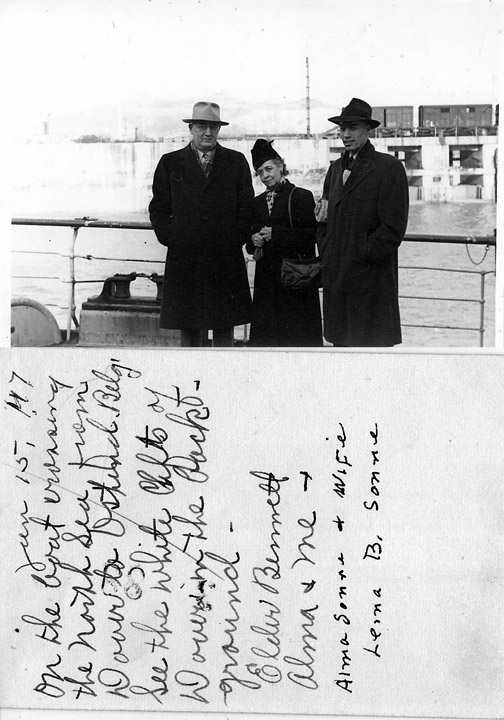 Jun 15, '47
On the boat crossing
the North Sea from
Dover to Ostend, Belgi.
See the White Clifts of
Dover in the Backt-
ground -
Elder Bennett
Alma & me +
Alma Sonne & Wife
Leona B. Sonne